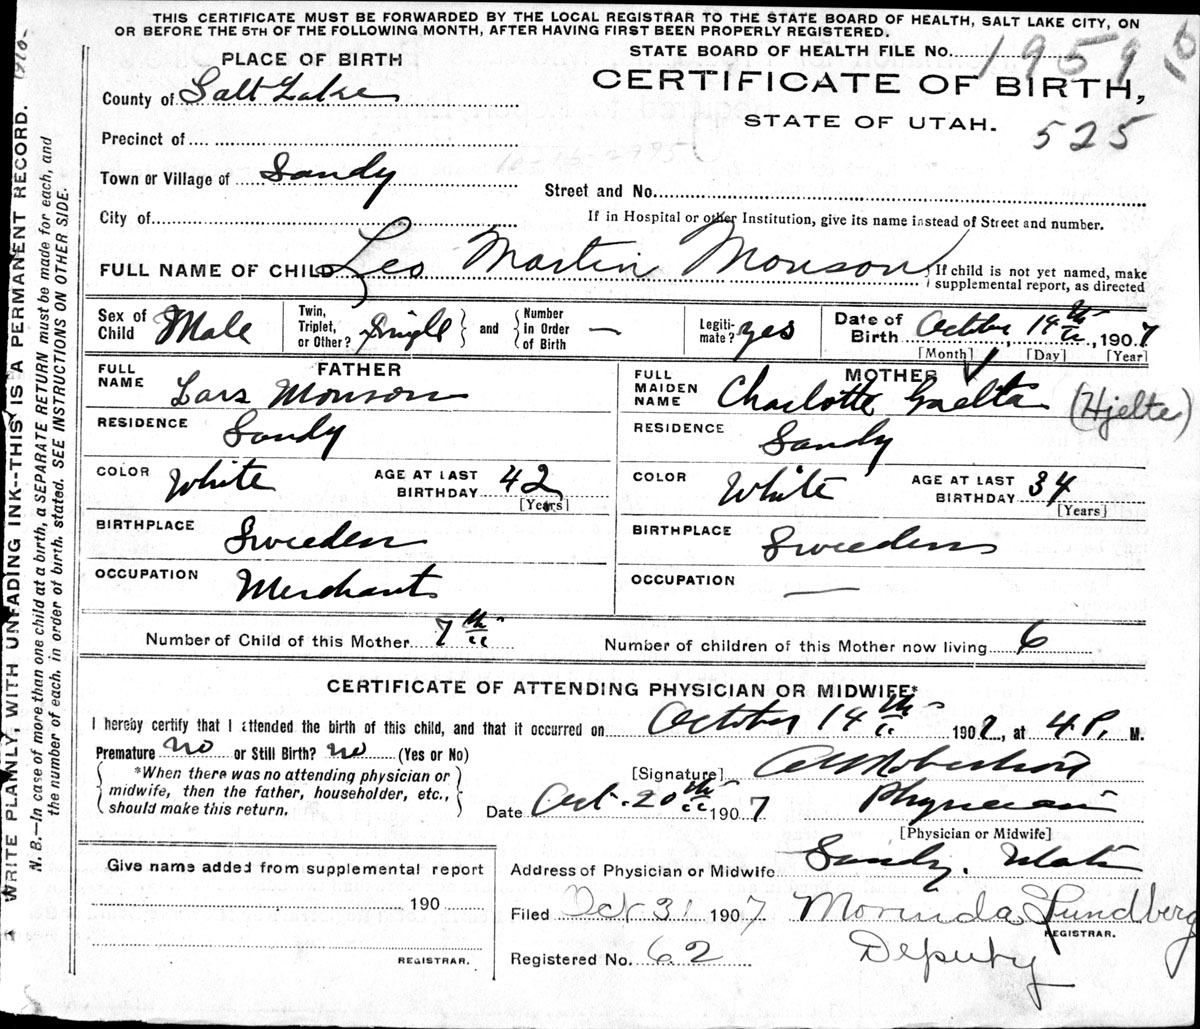 THIS CERTIFICATE MUST BE FORWARDED BY THE LOCAL REGISTRAR TO THE STATE BOARD OF HEALTH, SALT LAKE CITY, ON
OR BEFORE THE 5TH OF THE FOLLOWING MONTH, AFTER HAVING FIRST BEEN PROPERLY REGISTERED.
PLACE OF BIRTH
STATE BOARD OF HEALTH FILE No. 1959
County of Salt Lake
CERTIFICATE OF BIRTH,
STATE OF UTAH.
525
Precinct of
Town or Village of Sandy
Street and No.
City of
If in Hospital or other Institution, give its name instead of Street and number.
FULL NAME OF CHILD Leo Martin Monson
{If child is not yet named, make
supplemental report, as directed
Sex of Child Male
Twin, Triplet, or Other? Single } and { Number in Order of Birth —
Legiti-mate? yes
Date of Birth October, 14th, 1907
[Month] [Day] [Year]
FATHER
FULL NAME Lars Monson
RESIDENCE Sandy
COLOR White AGE AT LAST BIRTHDAY 42
[Years]
BIRTHPLACE Sweeden
OCCUPATION Merchant
MOTHER
FULL MAIDEN NAME Charlotte Gaelta (Hjelte)
RESIDENCE Sandy
COLOR White AGE AT LAST BIRTHDAY 34
[Years]
BIRTHPLACE Sweeden
OCCUPATION —
Number of Child of this Mother 7th
Number of children of this Mother now living 6
CERTIFICATE OF ATTENDING PHYSICIAN OR MIDWIFE*
I hereby certify that I attended the birth of this child, and that it occurred on October 14th 1907, at 4 P. M.
Premature no or Still Birth? no (Yes or No)
{ *When there was no attending physician or
midwife, then the father, householder, etc.,
should make this return. }
[Signature] Robertson
Date Oct. 20th 1907
Physician
[Physician or Midwife]
Address of Physician or Midwife Sandy. Utah
Give name added from supplemental report
190
REGISTRAR.
Filed Oct 31 1907 Morinda Lundberg
REGISTRAR.
Registered No. 62 Deputy
WRITE PLAINLY, WITH UNFADING INK--THIS IS A PERMANENT RECORD.
N. B.—In case of more than one child at a birth, a SEPARATE RETURN must be made for each, and
the number of each, in order of birth, stated. SEE INSTRUCTIONS ON OTHER SIDE.